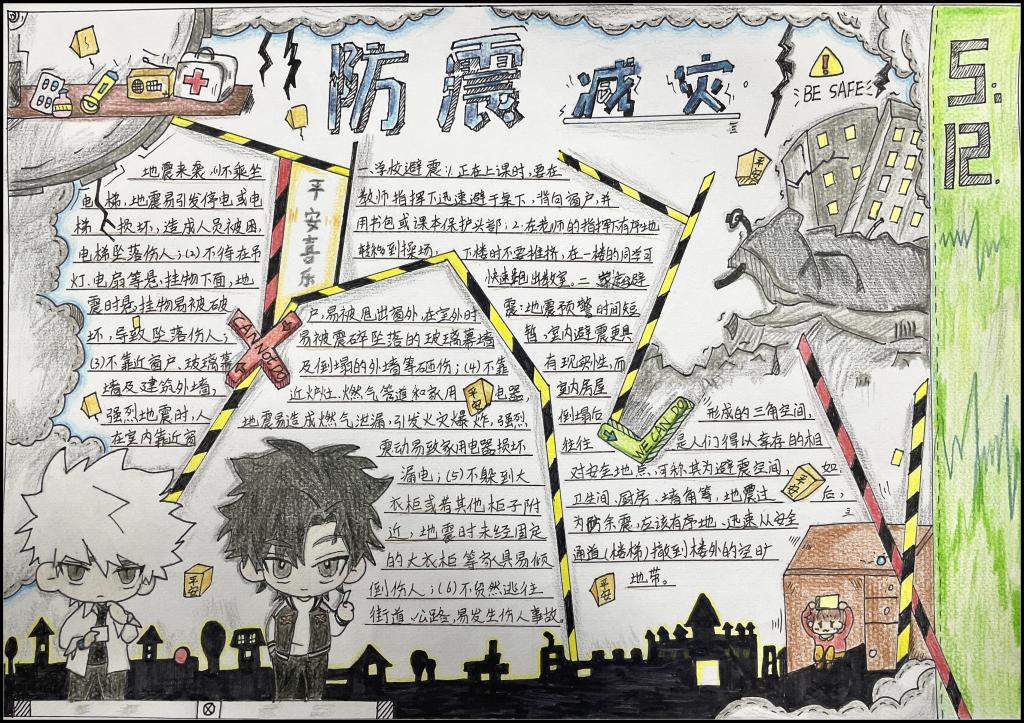 防震减灾
BE SAFE
5.
12.
平安喜乐
地震来袭，(1)不乘坐
电梯，地震易引发停电或电
梯损坏，造成人员被困，
电梯坠落伤人；(2)不待在吊
灯、电扇等悬挂物下面，地
震时悬挂物易被破
坏，导致坠落伤人；
(3)不靠近窗户、玻璃幕
墙及建筑外墙，
强烈地震时，人
在室内靠近窗
户，易被甩出窗外，在室外时
易被震碎坠落的玻璃幕墙
及倒塌的外墙等砸伤；(4)不靠
近炉灶、燃气管道和家用电器，
地震易造成燃气泄漏，引发火灾爆炸，强烈
震动易致家用电器损坏
漏电；(5)不躲到大
衣柜或者其他柜子附
近，地震时未经固定
的大衣柜等家具易倾
倒伤人；(6)不贸然逃往
街道、公路，易发生伤人事故。
一、学校避震：1.正在上课时，要在
教师指挥下迅速避于桌下，背向窗户，并
用书包或课本保护头部；2.在老师的指挥下有序地
转移到操场，下楼时不要推挤，在一楼的同学可
快速跑出教室。二、家庭避
震：地震预警时间短
暂，室内避震更具
有现实性，而
室内房屋
倒塌后
往往
形成的三角空间，
是人们得以幸存的相
对安全地点，可称其为避震空间，如
卫生间、厨房、墙角等，地震过后，
为防余震，应该有序地、迅速从安全
通道(楼梯)撤到楼外的空旷
地带。
CAN NOT DO
WE CAN DO
平安
平安
平安
平安
平安